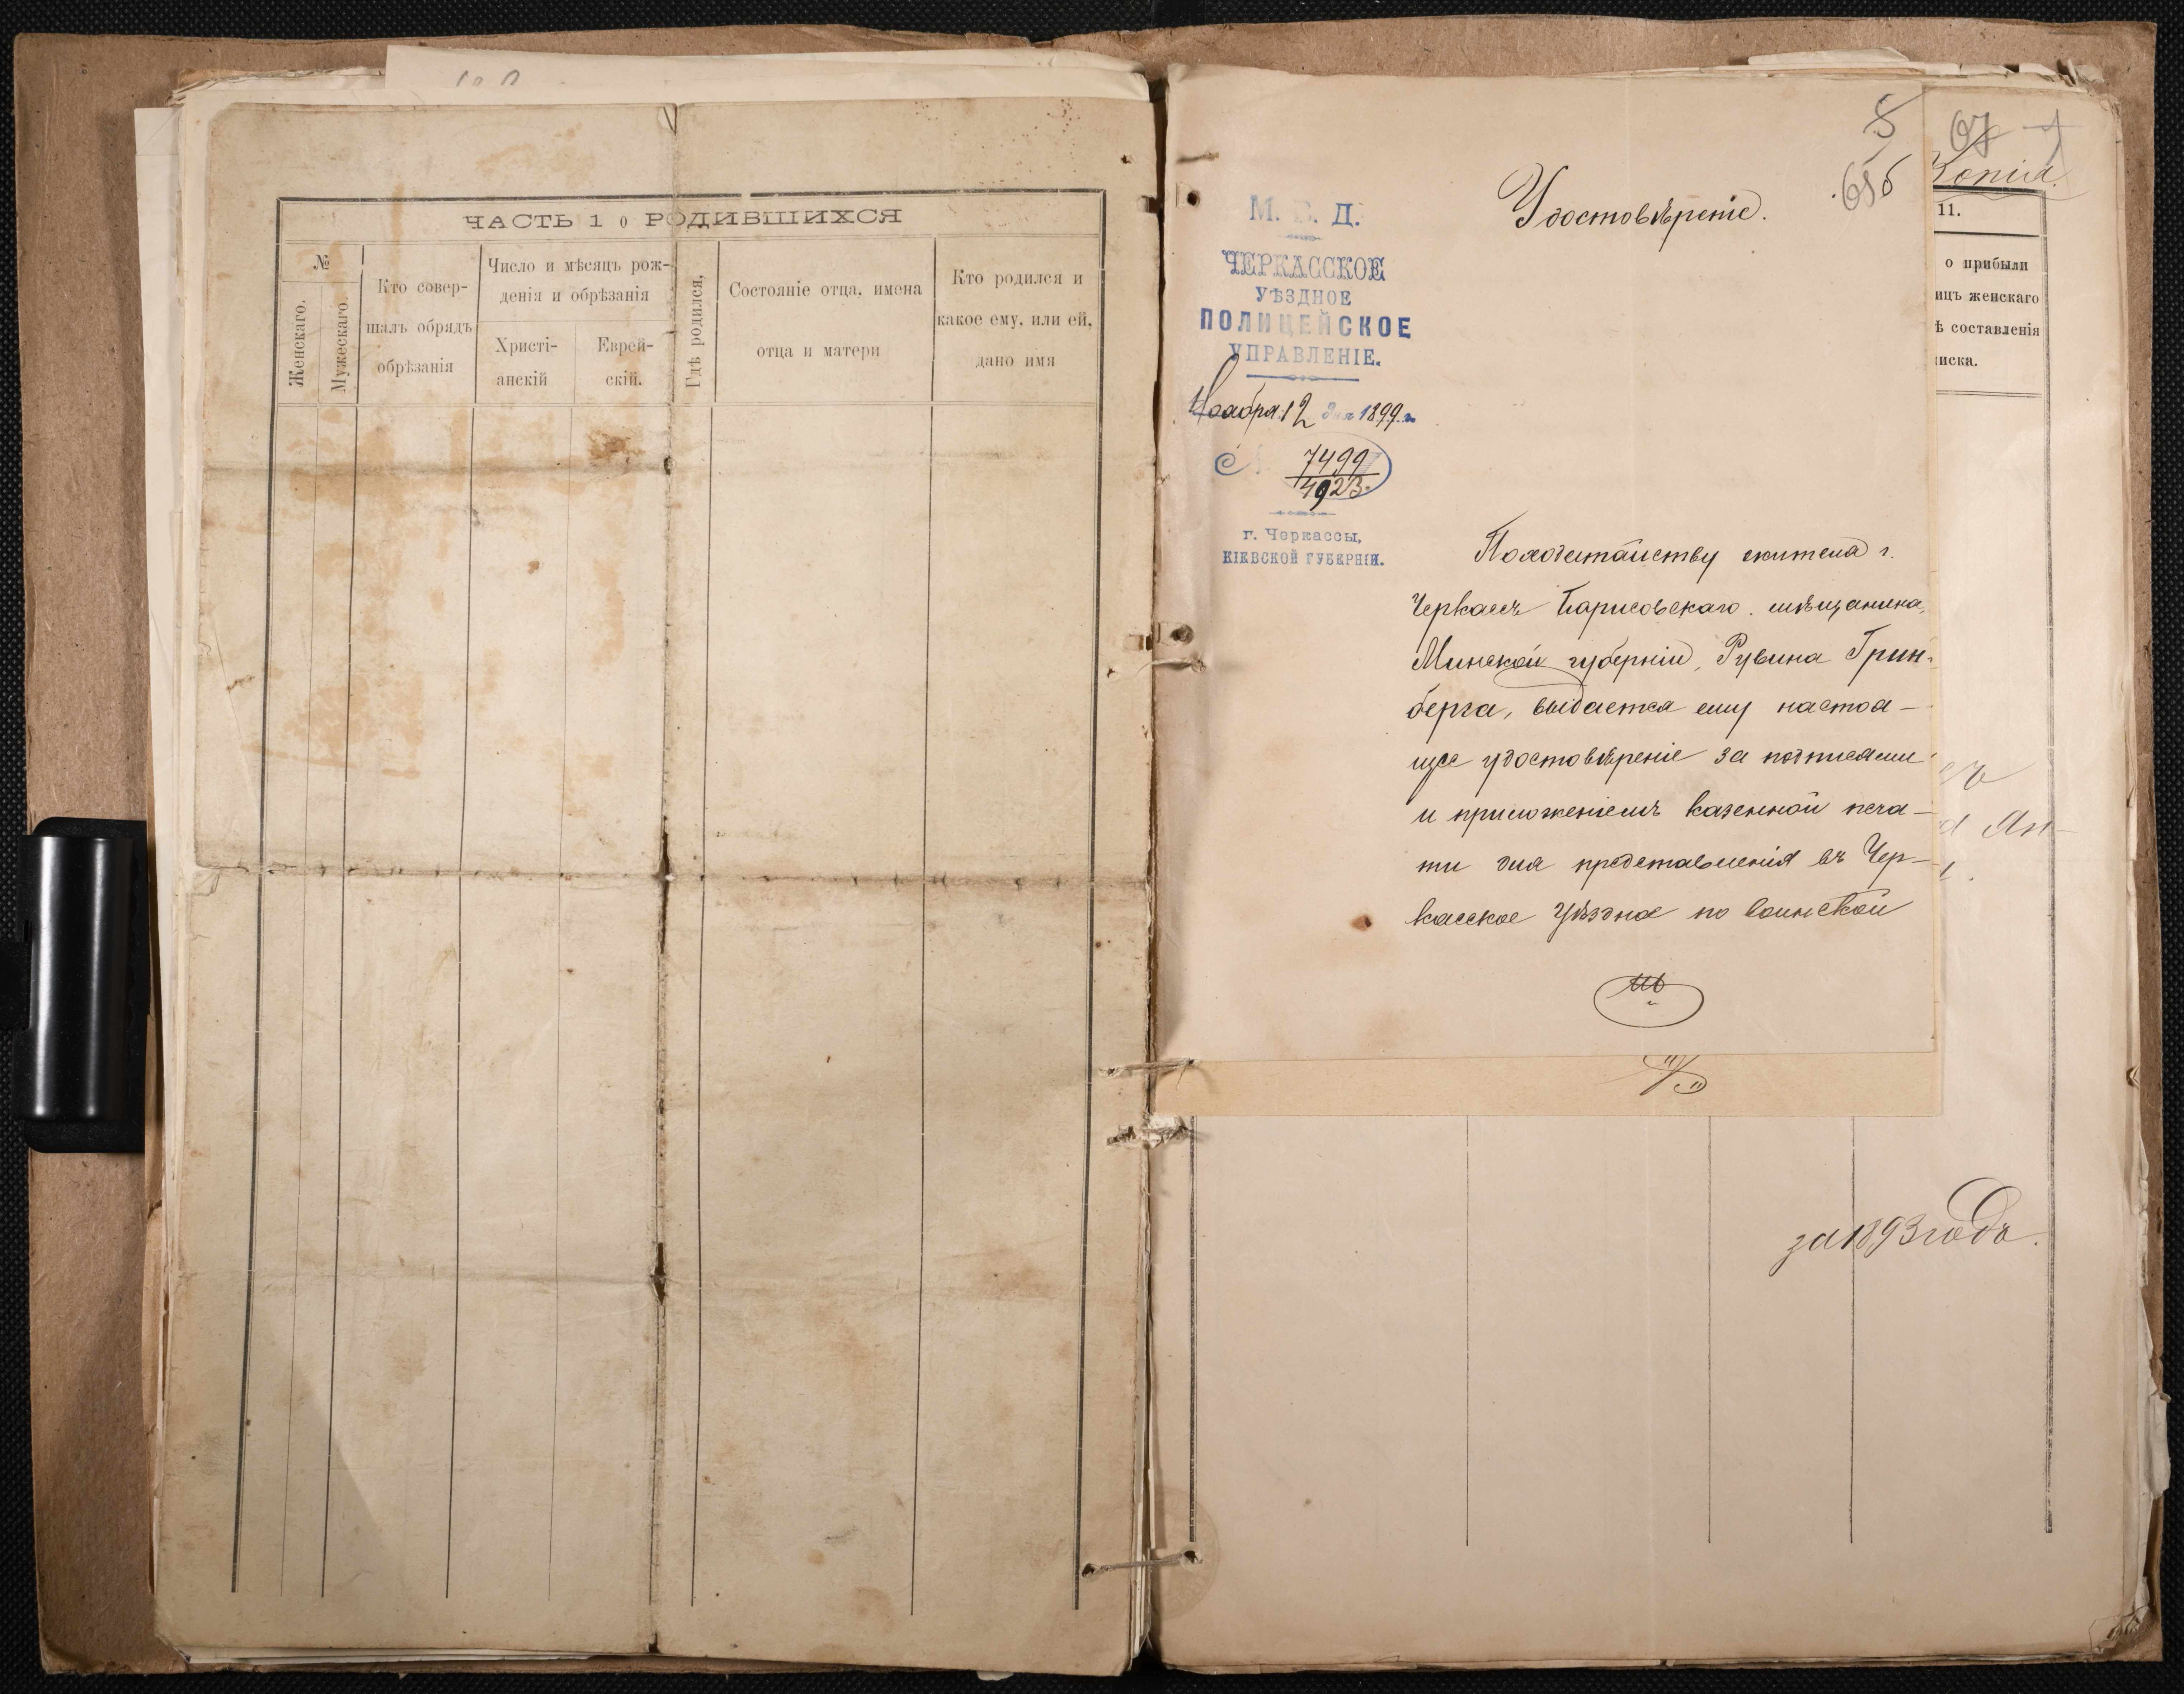 ЧАСТЬ 1 о РОДИВШИХСЯ
№
Женскаго.
Мужескаго.
Кто совер-
шалъ обрядъ
обрѣзанія
Число и мѣсяцъ рож-
денія и обрѣзанія
Христі-
анскій
Еврей-
скій.
Гдѣ родился.
Состояніе отца, имена
отца и матери
Кто родился и
какое ему, или ей,
дано имя
М. В. Д.
ЧЕРКАССКОЕ
УѢЗДНОЕ
ПОЛИЦЕЙСКОЕ
УПРАВЛЕНІЕ.
Ноября 12 дня 1899 г.
7499
4923
г. Черкассы,
КІЕВСКОЙ ГУБЕРНІИ.
Удостовѣреніе.
Походатайству жителя г.
Черкассъ Борисовскаго мѣщанина,
Минской губерніи, Рувина Грин-
берга, выдается ему настоя-
щее удостовѣреніе за подписами
и приложеніемъ казенной печа-
ти для представленія въ Чер-
касское Уѣздное по воинской
Копія.
11.
о прибыли
ицъ женскаго
ѣ составленія
иска.
за 1893 годъ.